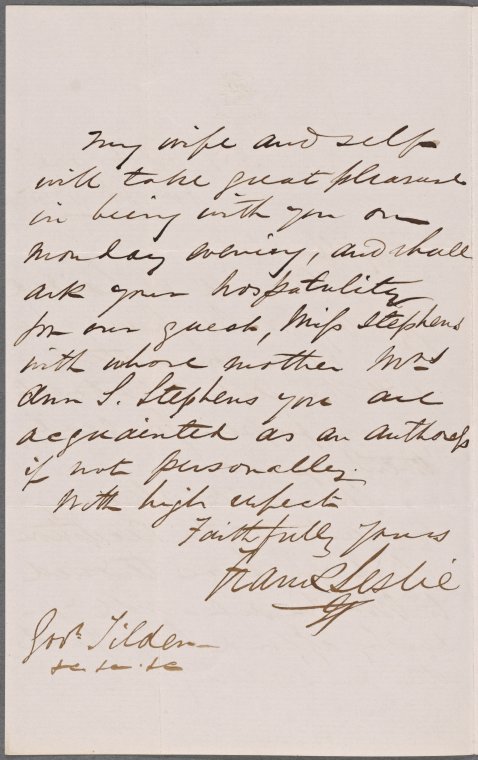 my wife and self
will take great pleasure
in being with you on
monday evening, and shall
ask your hospatality
for our guest, Miss Stephens
with whose mother Mrs
Ann S. Stephens you are
acquainted as an authoress
if not personally.
With high respect
Faithfully yours
Frank Leslie
Govr. Tilden
&c &c &c